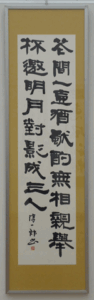 花間一壺酒獨酌無相親舉
杯邀明月對影成三人